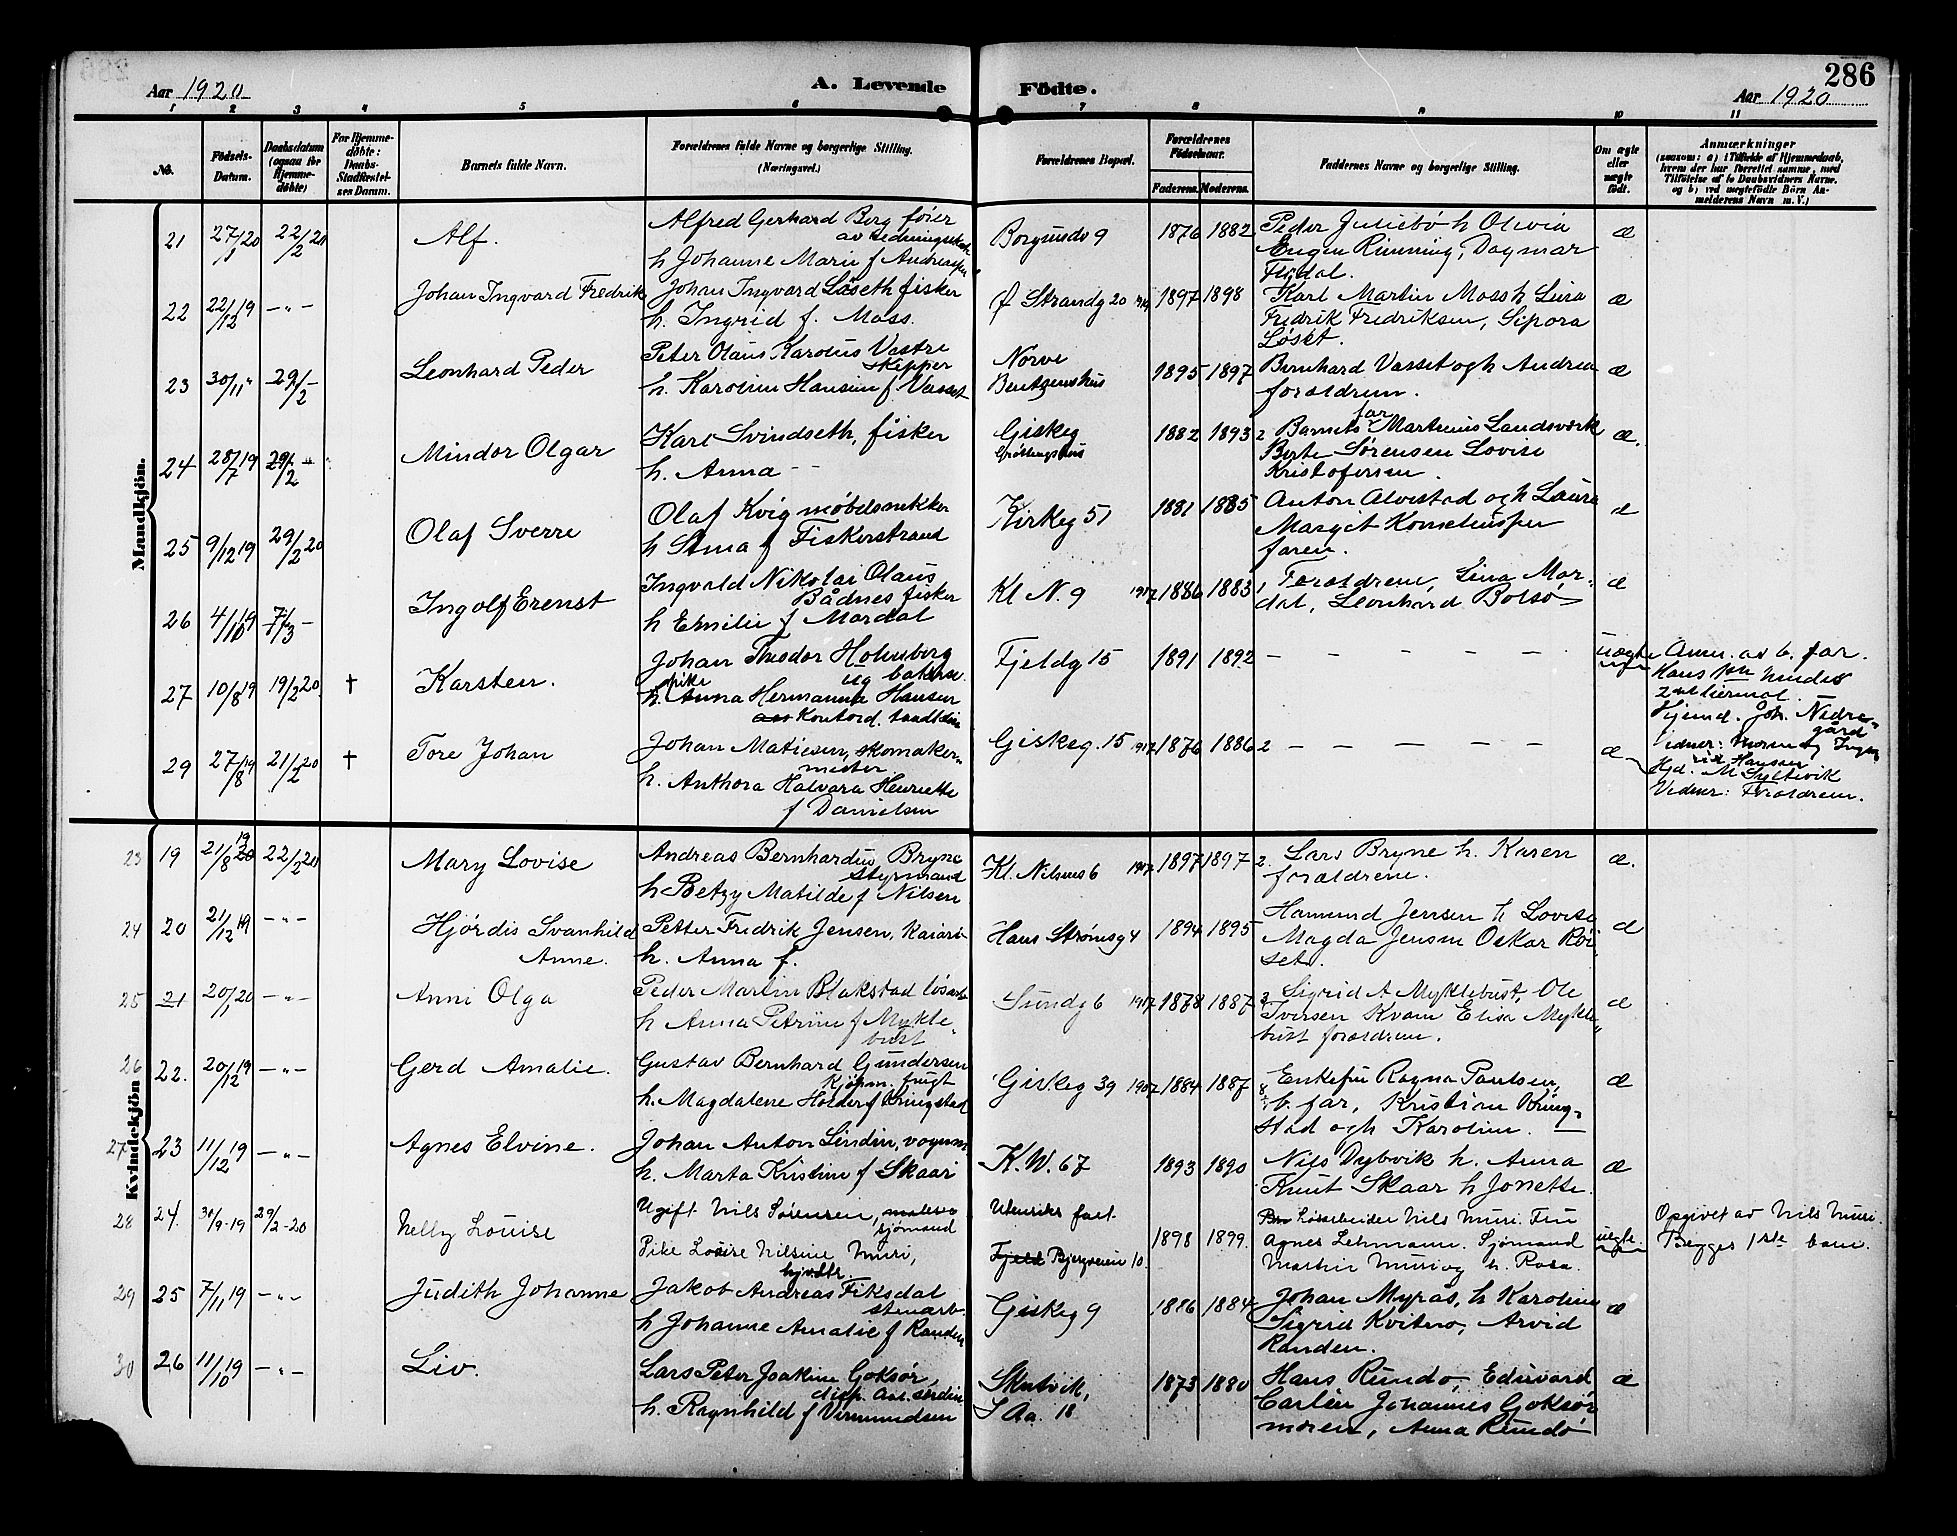 286
Aar 1920 A. Levende Födte. Aar 1920
1 2 3 4 5 6 7 8 9 10 11
No.
Fødsels-Datum.
Daabsdatum (ogsaa for Hjemmedöbte)
For Hjemmedöbte: Daabs-Stadfæstelses Datum.
Barnets fulde Navn.
Forældrenes fulde Navne og borgerlige Stilling.
(Næringsvei.)
Forældrenes Bopæl.
Forældrenes Födselsaar.
Faderens. Moderens.
Faddernes Navne og borgerlige Stilling.
Om ægte eller uægte født.
Anmærkninger
(saasom: a) i Tilfælde af Hjemmedaab, hvem der har forrettet samme, med Tilföielse af to Daabsvidners Navne, og b) ved uegtefödte Börn Anmelderens Navn m. V.)
Mandkjön.
21 27/8 20 22/2 20 Alf. Alfred Gerhard Berg føier
h Johanne Marie f Andersen
Borgundv 9 1876 1882 Peder Juliebø h Olivia
Eugen Rimming, Dagmar
Flydal. æ
22 22/12 19 -"- Johan Ingvard Fredrik Johan Ingvard Løseth fisker
h. Ingrid f. Moss.
Ø Strandg 20 1897 1898 Karl Martin Moss h Lina
Fredrik Fredriksen, Sipora
Løset. æ
23 30/11 " 29/2 - Leonhard Peder Peter Olaus Karolus Vastre
Skipper
h. Karoline Hansine f Vasset
Norve
Bentzenshus 1895 1897 Bernhard Vasset og h Andrea
forældrene. æ
24 28/7 19 29/2 " Mindor Olgar Karl Svindseth, fisker
h. Anna --
Giskeg 1882 1893 2 Barnets far Martinus Landsverk
Berte Sørensen Lovise
Kristofersen. æ.
25 9/12 19 29/2 20 Olaf Sverre Olaf Kvig møbelsnikker
h Stina f Fiskerstrand
Kirkeg 51 1881 1885 Anton Alvestad og h Laura
Margit Korneliussen
faren. æ
26 4/10 19 7/3 - Ingolf Erenst Ingvald Nikolai Olaus
Bådnes fisker
h Emilie f Mardal
Kl N. 9 1917 1886 1883 1 Forældrene, Lina Mar-
dal, Leonhard Bolsø æ
27 10/8 19 19/2 20. † Karsten. Johan Theodor Holmberg
ug baker
pike
h. Anna Hermanna Hansen
Kontord.
Fjeldg 15 1891 1892 - - - - - uægte Anm. av b. far.
Hans 1ste hindes
2net tiermal.
Hjemd. Joh. Nedre-
gård
29 27/8 19 21/2 20 † Tore Johan Johan Matiesen, skomaker-
mester
h. Anthora Halvara Henriette
f Danielsen
Giskeg. 15 1917 1876 1886 2 - - - - - æ Hjd. M Syltevik
Vidner: Forældrene.
Kvindekjön
23 19 21/8 19 22/2 20 Mary Lovise Andreas Bernhardus Bryne
Styrmand
h Betzy Matilde f Nilsen
Kl. Nilsens 6 1917 1897 1897 2. Lars Bryne h. Karen
forældrene. æ.
24 20 21/12 19 -"- Hjørdis Svanhild
Anne. Petter Fredrik Jensen, Kaiarb
h. Anna f.
Hans Strømsg 4 1894 1895 Hamund Jensen h Lovise
Magda Jensen Oskar Røi-
set. æ
25 21 20/1 20 -"- Anni Olga Peder Martin Blakstad løsarb
h Anna Petrine f Mykle-
bust
Sundg 6 1917 1878 1887 3 Sigrid A Myklebust, Ole
Iversen Kvam Elisa Mykle-
bust forældrene. æ
26 22. 20/12 19 -"- Gerd Amalie. Gustav Bernhard Gundersen
Kjøpm. frugt
h. Magdalene Holder f Kringstad
Giskeg 39 1907 1884 1887 Enkefru Ragna Paulsen,
b. far, Kristian Kring-
stad og h Karoline. æ
27 23 11/12 19 -"- Agnes Elvine. Johan Anton Lindin, vognm
h. Marta Kristine f Skaar
K. W. 67 1893 1890 Nils Dybvik h. Anna
Knut Skaar h Jonette. æ
28 24. 30/9-19 29/2-20 Nelly Louise Ugift Nils Sørensen,
sjømand
Pike Louise Nilsine Muri,
Bjergveien 10. 1898 1899. Løsarbeider Nils Muri. Fru
Agnes Lehmann. Sjømand
Martin Muri og h. Rosa. uegte Opgivet av Nils Muri.
Begges 1ste barn.
29 25 7/11 19 -"- Judith Johanne Jakob Andreas Fiksdal
stenarb
h Johanne Amalie f Randen
Giskeg 9 1886 1884 Johan Myrås, h Karoline
Sigrid Kvitnø, Arvid
Randen. æ
30 26 11/10 19 -"- Liv. Lars Peter Joakim Goksør,
h. Ragnhild f Vermundsen
Skutvik,
S Aa. 18 1873 1880 Hans Rundø, Edevard
Carlin Johannes Goksør
moren, Anna Rundø æ